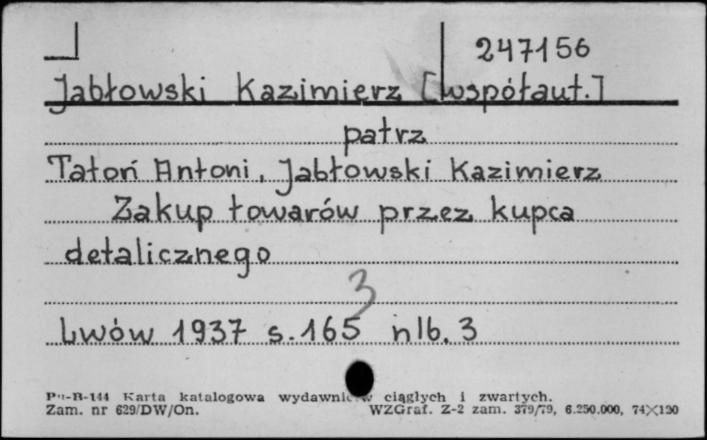 247156
Jabłowski Kazimierz [współaut.]
patrz
Tatoń Antoni, Jabłowski Kazimierz
Zakup towarów przez kupca
detalicznego
3
Lwów 1937 s. 165 nlb. 3
Pu-B-144 Karta katalogowa ciągłych i zwartych.
Zam. nr 629/DW/On. WZGraf. Z-2 zam. 379/79, 6.250.000, 74×120